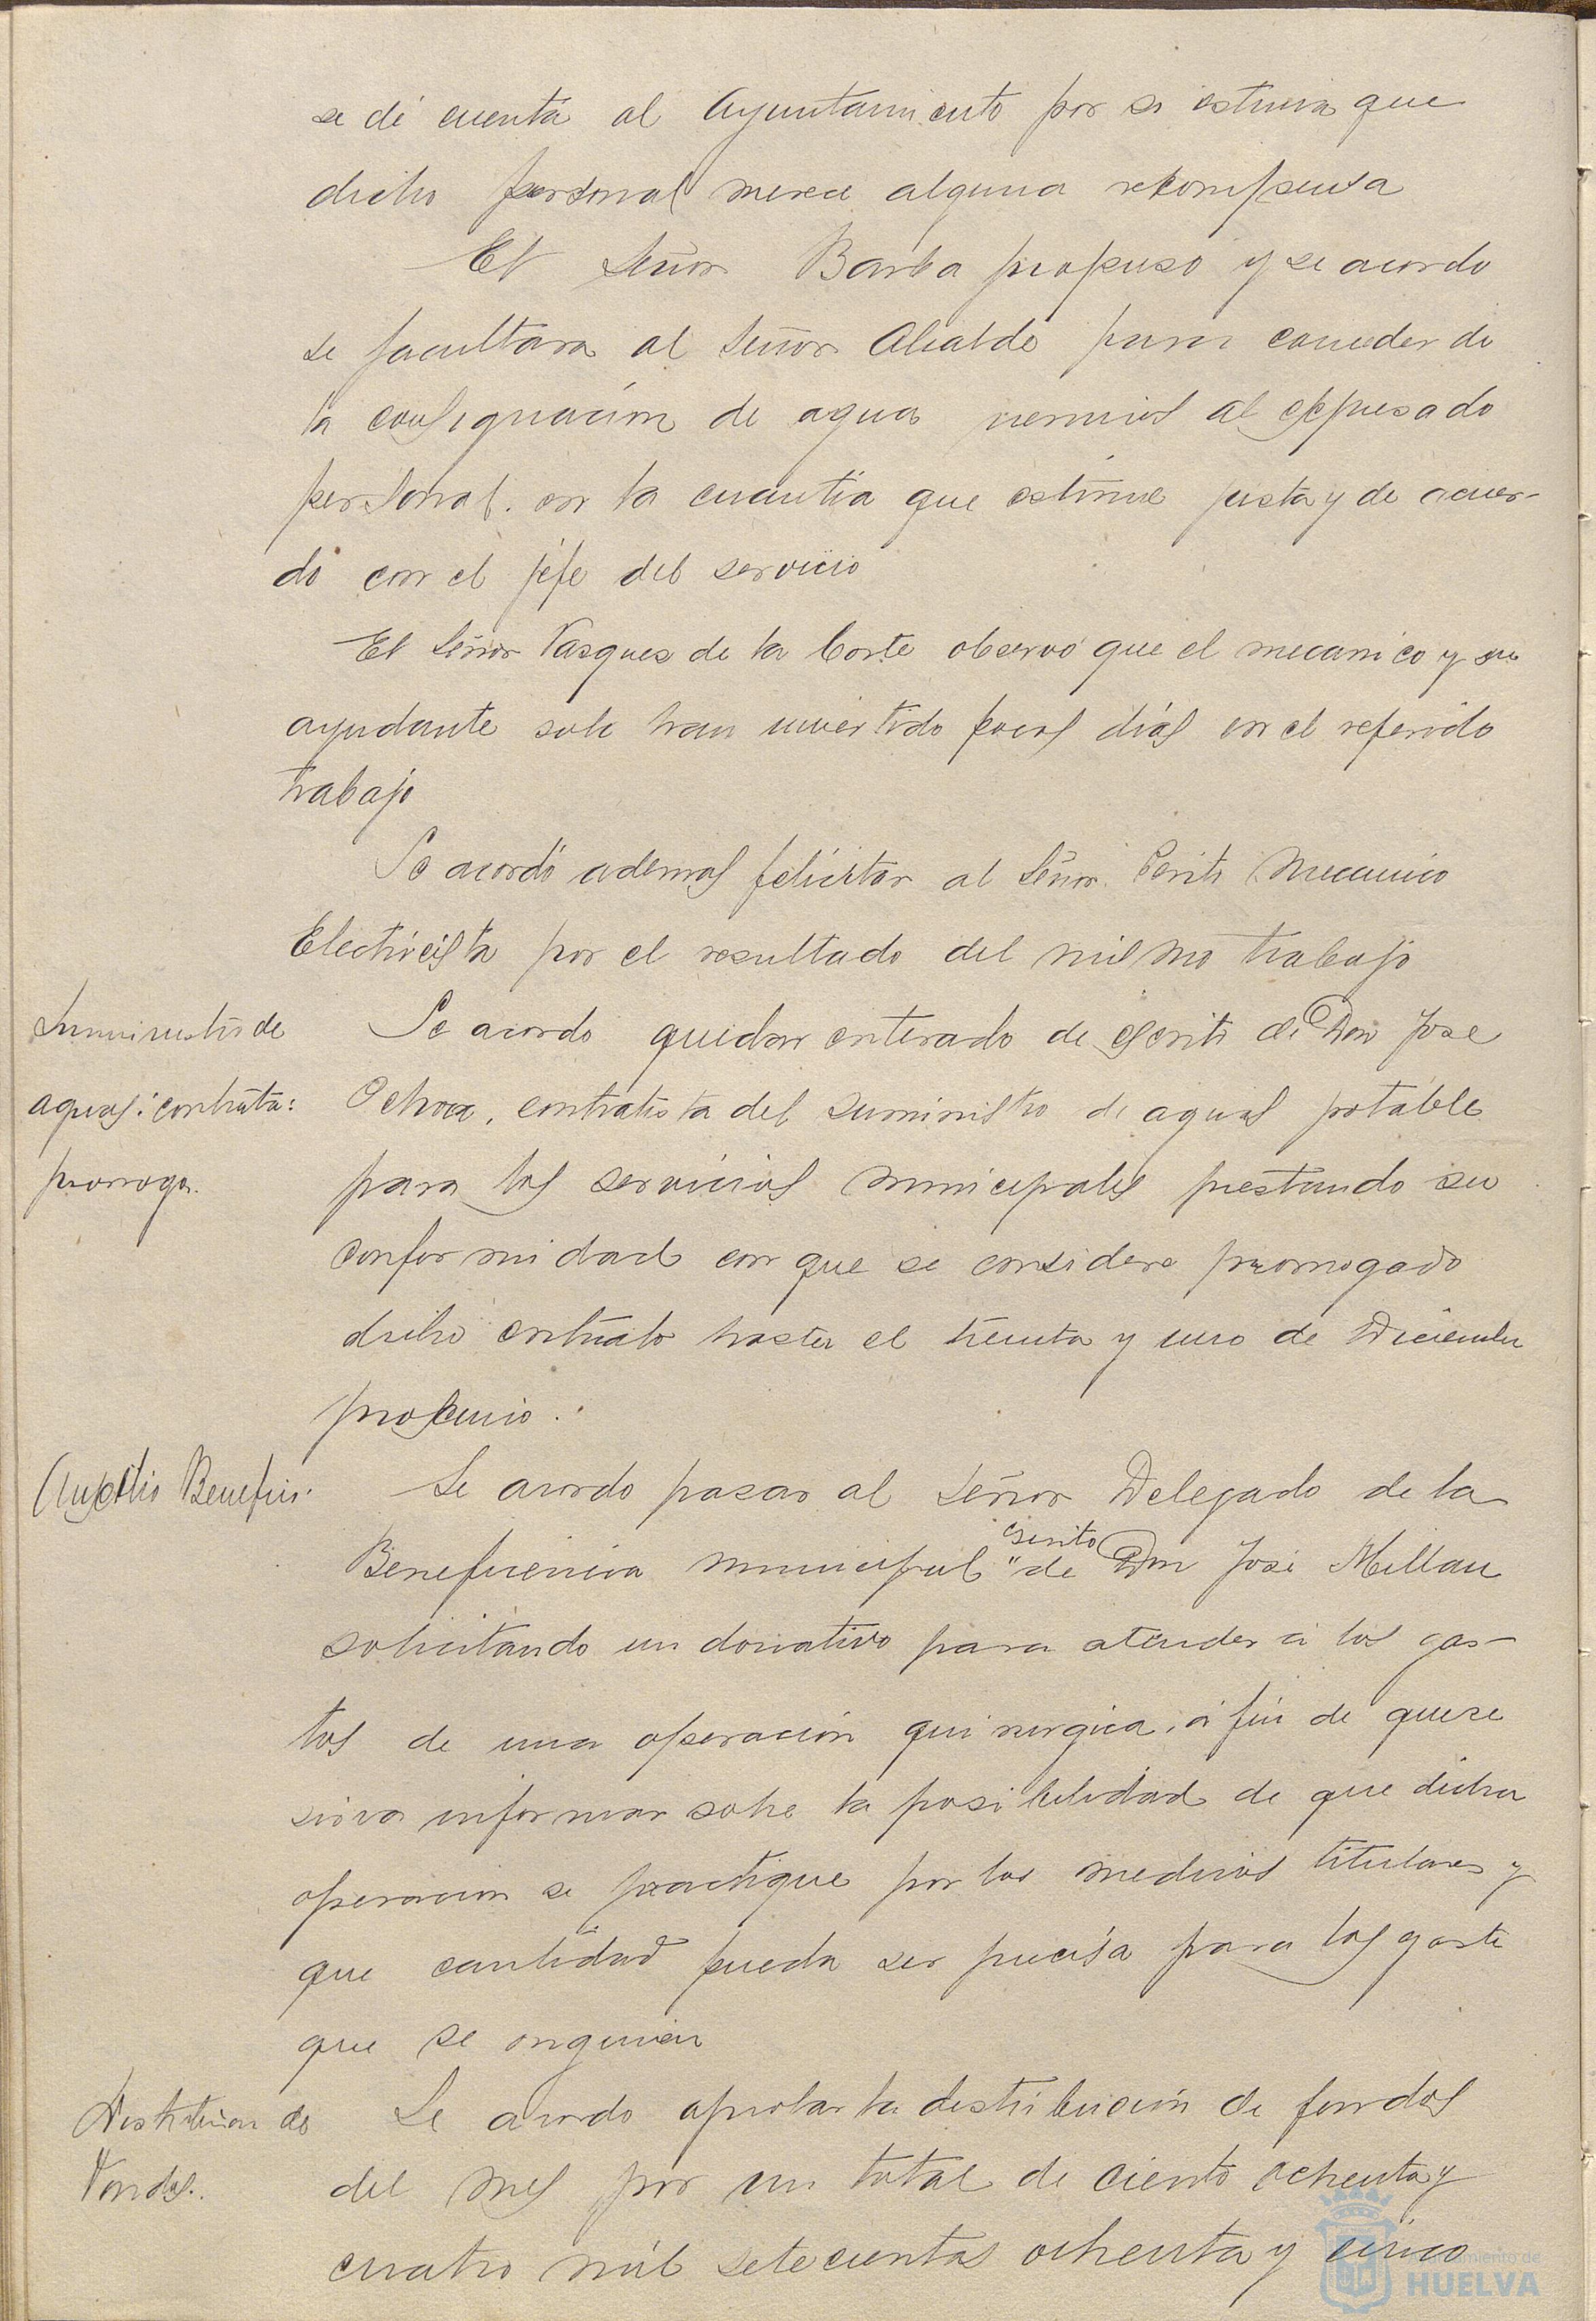 se dé cuenta al Ayuntamiento por si estima que
dicho personal merece alguna recompensa
El Señor Barba propuso y se acordo
se facultara al Señor Alcalde para conceder de
la consignación de aguas premios al expresado
personal. en la cuantía que estime justa y de acuer-
do con el jefe del servicio
El Señor Vasquez de la Corte observó que el mecanico y su
ayudante solo han invertido pocos dias en el referido
trabajo
Se acordó ademas felicitar al Señor Perito Mecanico
Electricista por el resultado del mismo trabajo
Suministro de
aguas: contrata:
prorroga.
Se acordo quedar enterado de escrito de Don Jose
Ochoa, contratista del suministro de aguas potable
para los servicios municipales prestando su
conformidad con que se considere prorrogado
dicho contrato hasta el treinta y uno de Diciembre
proximo.
Auxilio Benefico.
Se acordo pasar al Señor Delegado de la
Beneficencia municipal " escrito de Don José Millan
solicitando un donativo para atender a los gas-
tos de una operación quirurgica, a fin de que se
sirva informar sobre la posibilidad de que dicha
operacion se practique por los medicos titulares y
que cantidad pueda ser precisa para los gasto
que se originen
Distribucion de
Fondos.
Se acordo aprobar la distribución de fondos
del mes por un total de ciento ochenta y
cuatro mil setecientas ochenta y cinco
Ayuntamiento de
HUELVA